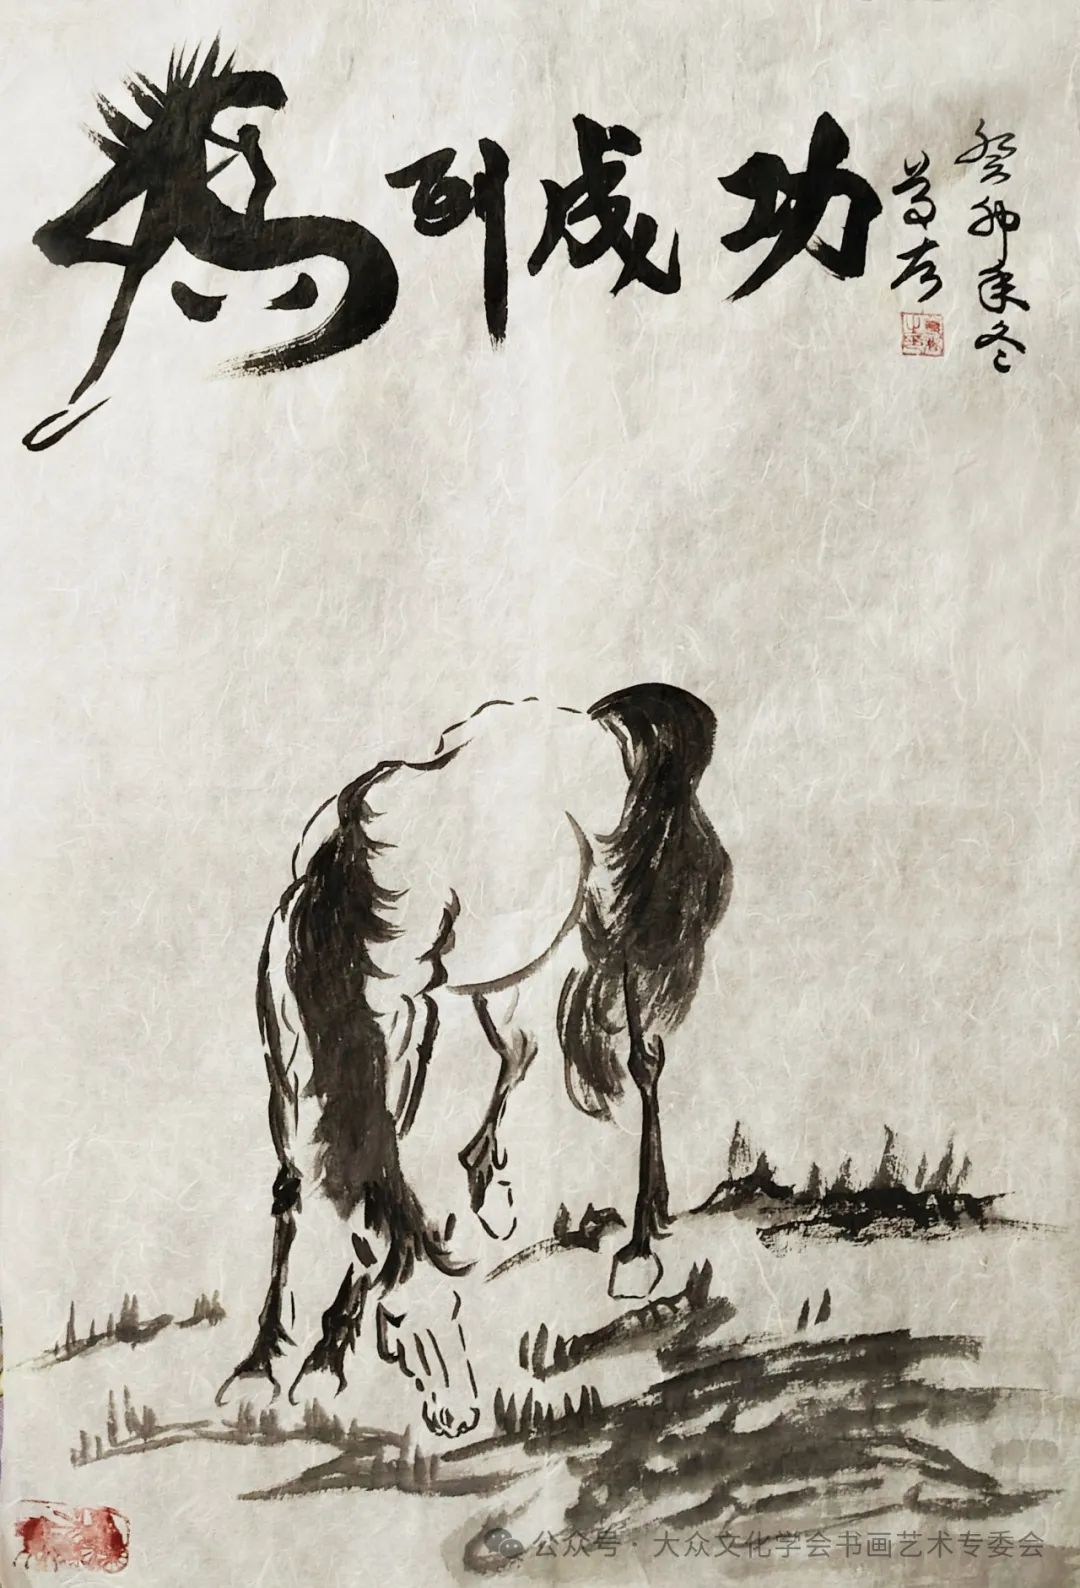 馬到成功
癸卯年冬
公众号·大众文化学会书画艺术专委会